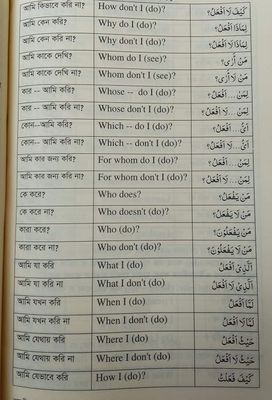 আমি কিভাবে করি না? How don't I (do)? كَيْفَ لَا اَفْعَلُ؟
আমি কেন করি? Why do I (do)? لِمَاذَا اَفْعَلُ؟
আমি কেন করি না? Why don't I (do)? لِمَاذَا لَا اَفْعَلُ؟
আমি কাকে দেখি? Whom do I (see)? مَنْ اَرٰى؟
আমি কাকে দেখি না? Whom don't I (see)? مَنْ لَا اَرٰى؟
কার -- আমি করি? Whose -- do I (do)? لِمَنْ... اَفْعَلُ؟
কার -- আমি করি না? Whose don't I (do)? لِمَنْ... لَا اَفْعَلُ؟
কোন--আমি করি? Which -- do I (do)? اَىُّ... اَفْعَلُ؟
কোন-- আমি করি না? Which -- don't I (do)? اَىُّ... لَا اَفْعَلُ؟
আমি কার জন্য করি? For whom do I (do)? لِمَنْ... اَفْعَلُ؟
আমি কার জন্য করি না? For whom don't I (do)? لِمَنْ... لَا اَفْعَلُ؟
কে করে? Who does? مَنْ يَفْعَلُ؟
কে করে না? Who doesn't (do)? مَنْ لَا يَفْعَلُ؟
কারা করে? Who (do)? مَنْ يَفْعَلُوْنَ؟
কারা করে না? Who don't (do)? مَنْ لَا يَفْعَلُوْنَ؟
আমি যা করি What I (do) اَلَّذِىْ اَفْعَلُ
আমি যা করি না What I don't (do) اَلَّذِىْ لَا اَفْعَلُ
আমি যখন করি When I (do) لَمَّا اَفْعَلُ
আমি যখন করি না When I don't (do) لَمَّا لَا اَفْعَلُ
আমি যেথায় করি Where I (do) حَيْثُ اَفْعَلُ
আমি যেথায় করি না Where I don't (do) حَيْثُ لَا اَفْعَلُ
আমি যেভাবে করি How I (do)? كَيْفَ فَعَلْتُ